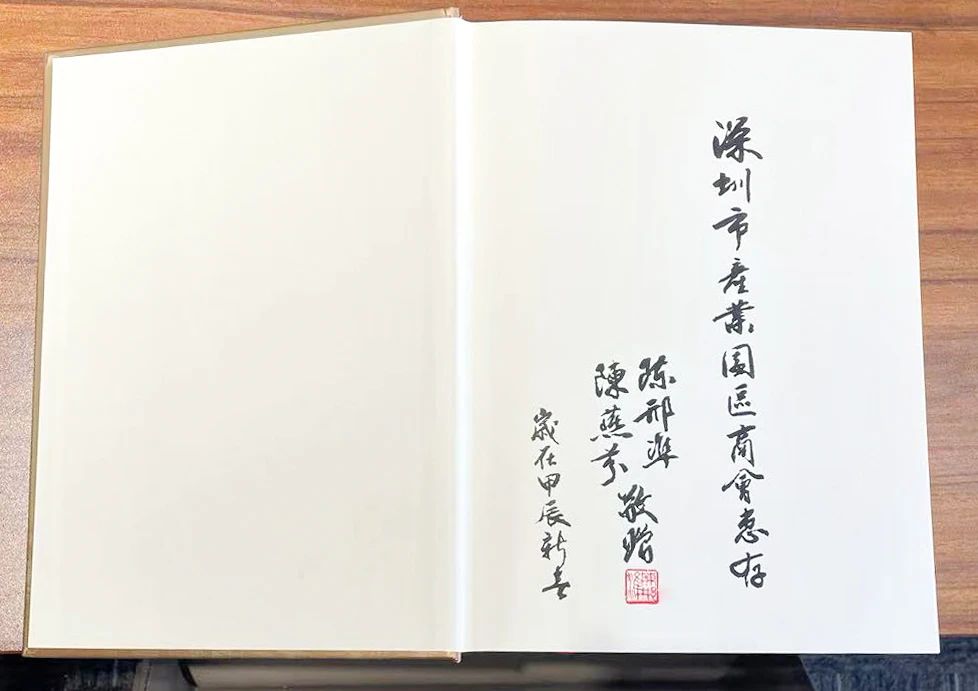 深圳市産業園區商會惠存
陳邢準
陳燕芬
敬贈
歲在甲辰新春